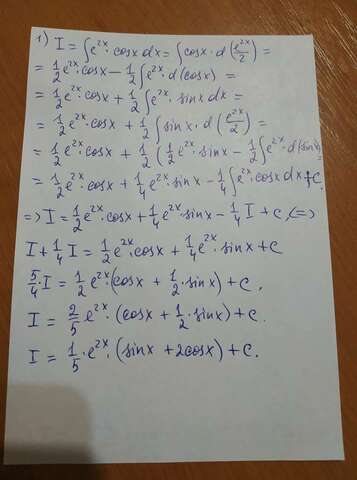 1) I = ∫e^{2x}·cosx dx = ∫cosx·d(e^{2x}/2) =
= 1/2 e^{2x}·cosx − 1/2 ∫e^{2x}·d(cosx) =
= 1/2 e^{2x}·cosx + 1/2 ∫e^{2x}·sinx dx =
= 1/2 e^{2x}·cosx + 1/2 ∫sinx·d(e^{2x}/2) =
= 1/2 e^{2x}·cosx + 1/2 (1/2 e^{2x}·sinx − 1/2 ∫e^{2x}·d(sinx)
= 1/2 e^{2x}·cosx + 1/4 e^{2x}·sinx − 1/4 ∫e^{2x}·cosx dx + C
=> I = 1/2 e^{2x}·cosx + 1/4 e^{2x}·sinx − 1/4 I + C, <=>
I + 1/4 I = 1/2 e^{2x}·cosx + 1/4 e^{2x}·sinx + C
5/4·I = 1/2 e^{2x}·(cosx + 1/2·sinx) + C,
I = 2/5 e^{2x}·(cosx + 1/2·sinx) + C.
I = 1/5·e^{2x}·(sinx + 2cosx) + C.